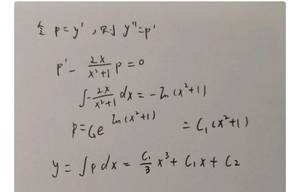 令 p=y', 则 y''=p'
p' - \frac{2x}{x^2+1} p = 0
\int -\frac{2x}{x^2+1} dx = -ln(x^2+1)
p = C_1 e^{ln(x^2+1)} = C_1(x^2+1)
y = \int p dx = \frac{C_1}{3} x^3 + C_1 x + C_2